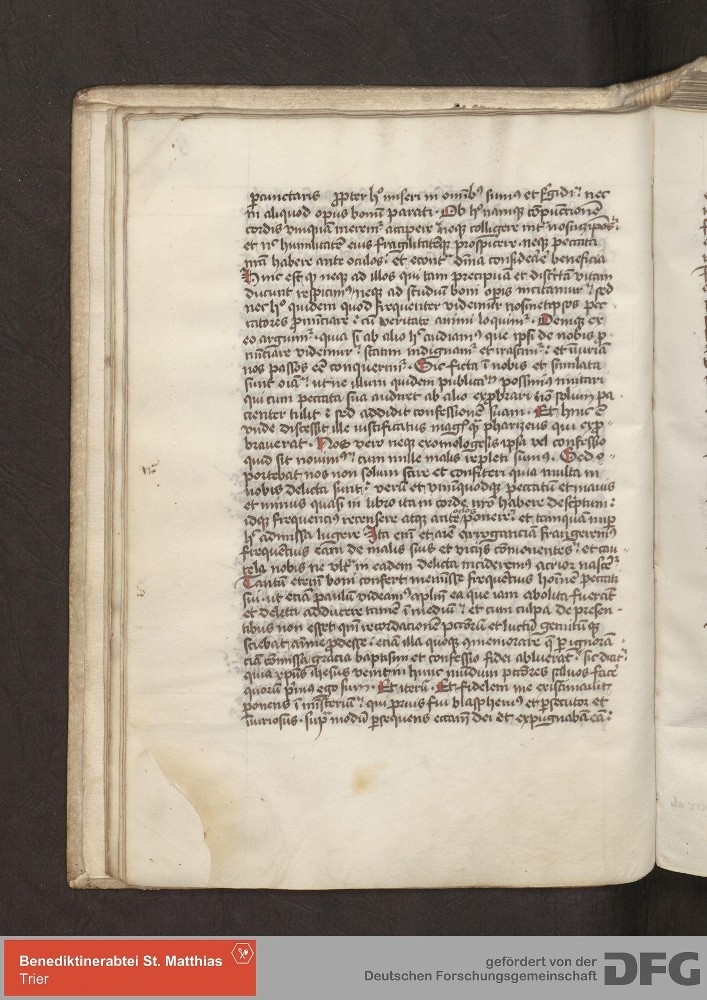 Propter hͦ miseri in omībꝰ sumus et frigidi: nec
in aliquod opus bonum parati. Ob hͦ namque cōpunctionē
cordis unquam neque colligere
et humilitatē eius fragilitatemque prospicere. neque peccata
nrā habere ante oculos: et dīna beneficia
Hinc est qͥ neque ad illos qui tam precipuā et vitam
ducunt respicimꝰ neque ad studiū boni opis incitamur: sed
nec hͦ quidem quod frequenter videmur nosmetipsos pec-
catores: cū veritate animi loquimͬ. Denique ex
eo arguimͬ. quia si ab alio hͦ audiamꝰ que ipsi de nobis
videmur: statim indignamͬ et irascimͬ: et iniuriā
nos passos eē conquerimͬ. Sic ficta ī nobis et simlata
sunt oīa: ut ne illum quidem publicanū possimꝰ imitari
qui cum peccata sua audiret ab alio nō solum pa-
cienter tulit: sed addidit confessionē suam. Et hinc ē
unde discessit ille iustificatus magis qͣ phariseus qui
braverat. Nos vero neque exomologesis ipsa vel confessio
quid sit novimꝰ: cum mille malis repleti sumꝰ. Sed o-
portebat nos non solum scire et confiteri quia multa in
nobis delicta sunt: verū et unumquodque peccatū et maius
et minus quasi in libro ita in corde nrō habere descͥptum:
idque frequencius recensere atque ante oclos ponere: et tamquā nup
hͨ admissa lugere. Ita enī et aīe arroganciā frangeremꝰ
frequencius eam de malis suis et viciis cōmonentes: et cau-
tela nobis ne ultͣ in eadem delicta incideremꝰ acrior nascͤͬ
Tantū etenim boni confert meminisse frequencius hoīnē peccati
sui. ut eciā paulū videamꝰ aplūm ea que iam abolita fuerāt
et deleta adducere tamen ī mediū: et cum culpa de presen-
tibus non esset qm̄ recordationē pctōrum et luctū gemitumque
sciebat aīme prodesse: eciā illa quoque qͦmemorare que per ignorā-
ciā cōmissa gracia baptismi et confessio fidei abluerat: sic dicit:
quia xpūs ihesus venit in hunc mūdum pctōres salvos facͤ
quorū primus ego sum. Et iterū. Et fidelem me existimavit
ponens ī misterium: qui prius fui blasphemus et persecutor et
iniuriosus. supͣ modū persequens ecclām dei et expugnabā eā:
Benediktinerabtei St. Matthias
Trier
gefördert von der
Deutschen Forschungsgemeinschaft
DFG